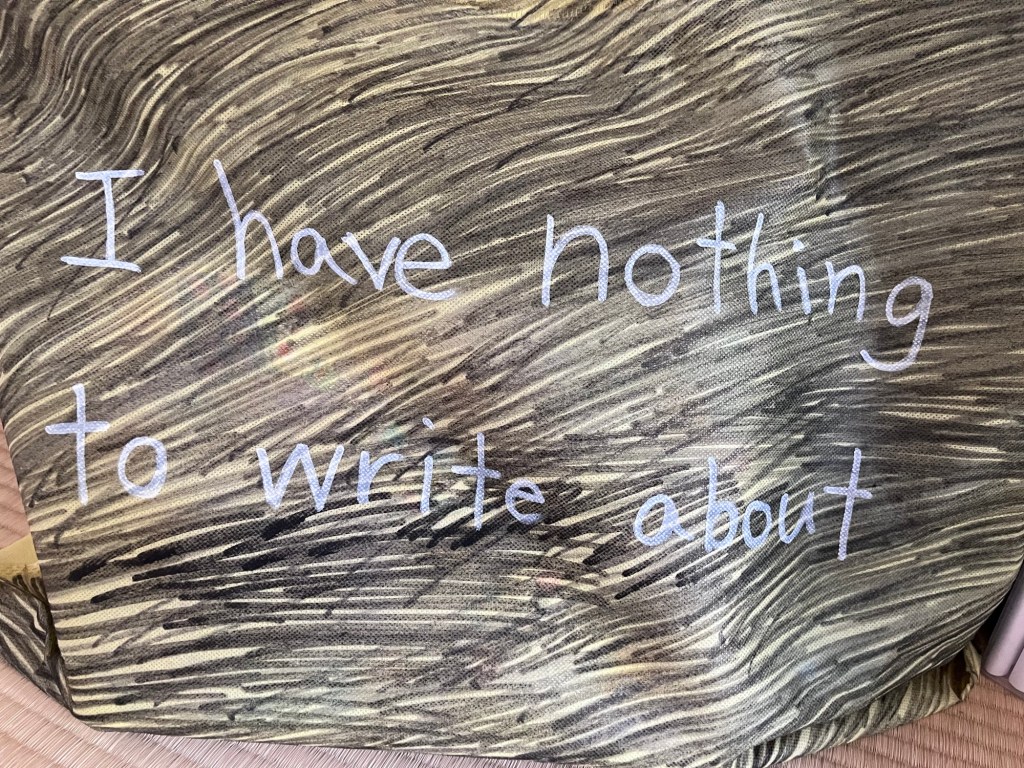 I have nothing
to write about